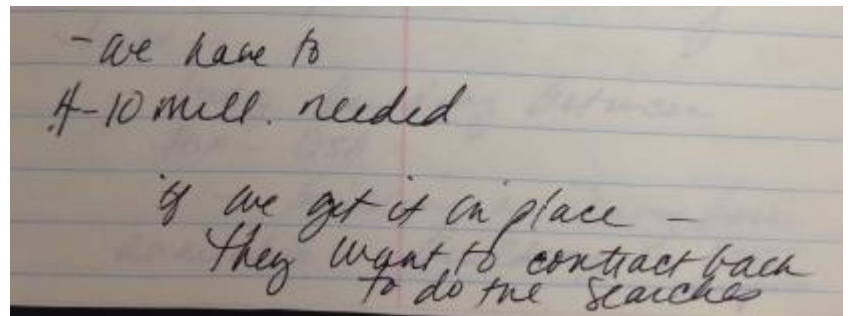 - we have to
4-10 mill. needed
if we get it in place -
they want to contract back
to do the searches